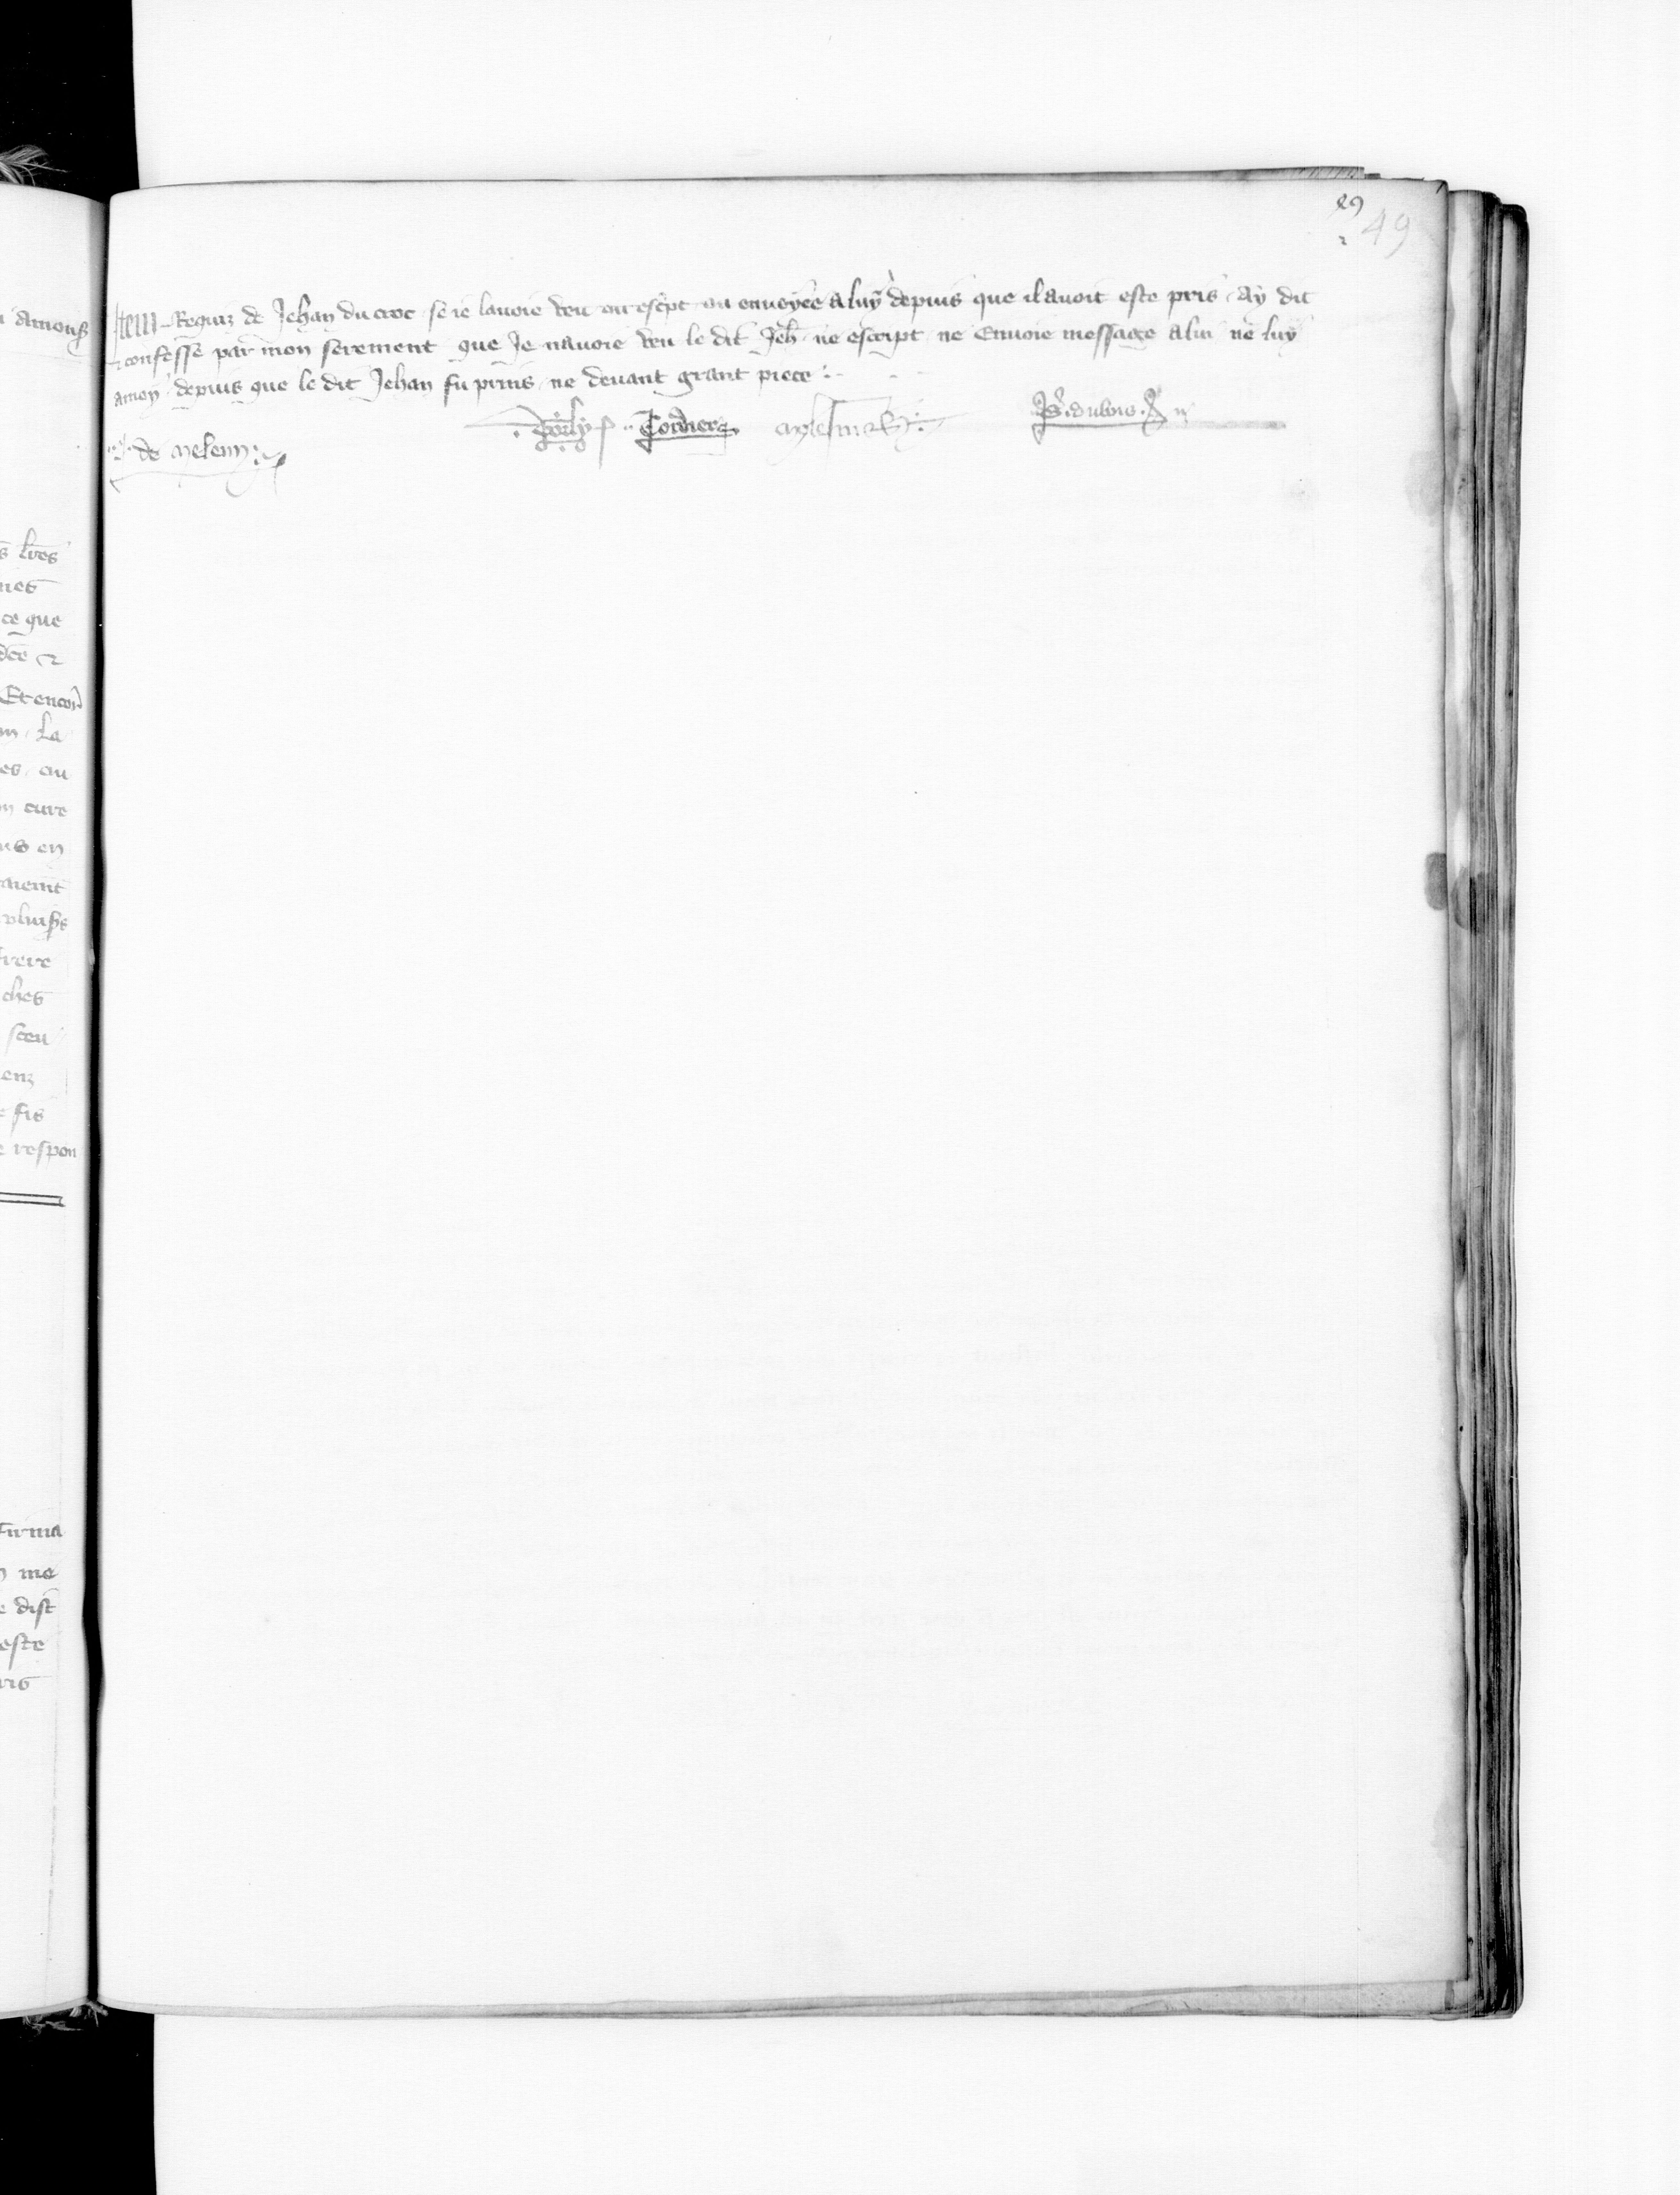 49
49
Item Requiz de Jehan du croc se ie lauoie veu ou escpt ou enuoyee a luy depuis que il auoit este pris Ay dit
⁊ confesse par mon serement que Je nauoie veu le dit Jeh ne escript ne Enuoie message a lui ne luy
amoy depuis que le dit Jehan fu prins ne deuant grant piece
Tordier dubois
de meleun
amous
lres
ce que
dce ⁊
Et encor
la
es au
cure
en
aient
frere
ches
sceu
enz
fis
respon
firma
me
dist
este